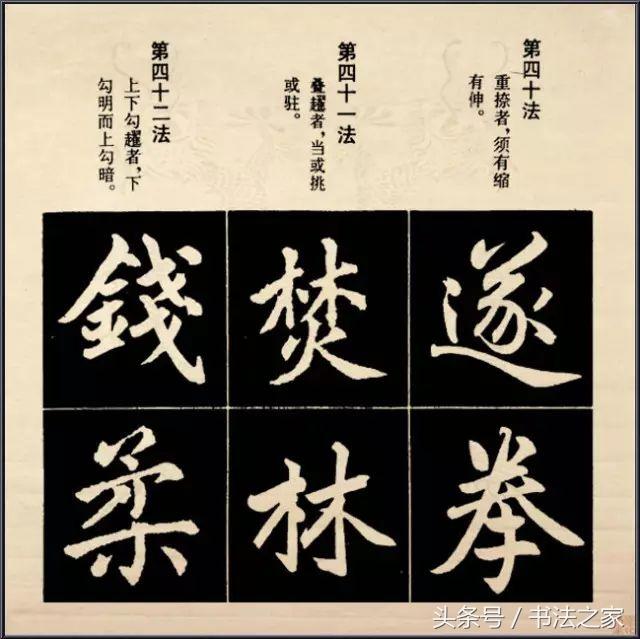 第四十法
重捺者，须有缩
有伸。
第四十一法
叠趯者，当或挑
或驻。
第四十二法
上下勾趯者，下
勾明而上勾暗。
遂
拳
焚
林
錢
柔
头条号 / 书法之家